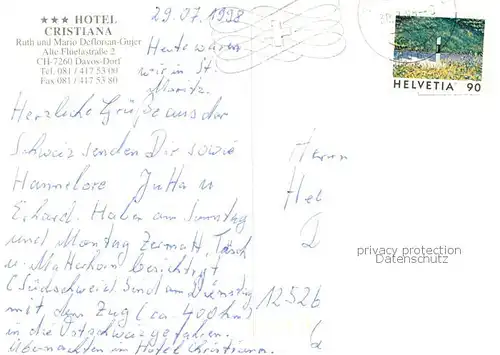 ★★★ HOTEL
CRISTIANA
Ruth und Mario Deflorian-Gujer
Alte Flüelastraße 2
CH-7260 Davos-Dorf
Tel. 081 / 417 53 00
Fax 081 / 417 53 80
29.07.1998
Heute waren
wir in St.
Moritz.
Herzliche Grüße aus der
Schweiz senden Dir sowie
Hannelore Jutta u
Erhard. Haben am Sonntag
und Montag Zermatt, Täsch
u. Matterhorn besichtigt
(Südschweiz). Sind am Dienstag
mit dem Zug (ca. 400 km)
in die Ostschweiz gefahren.
Übernachten im Hotel Christiana.
HELVETIA 90
Herrn
Hel
12526
privacy protection
Datenschutz